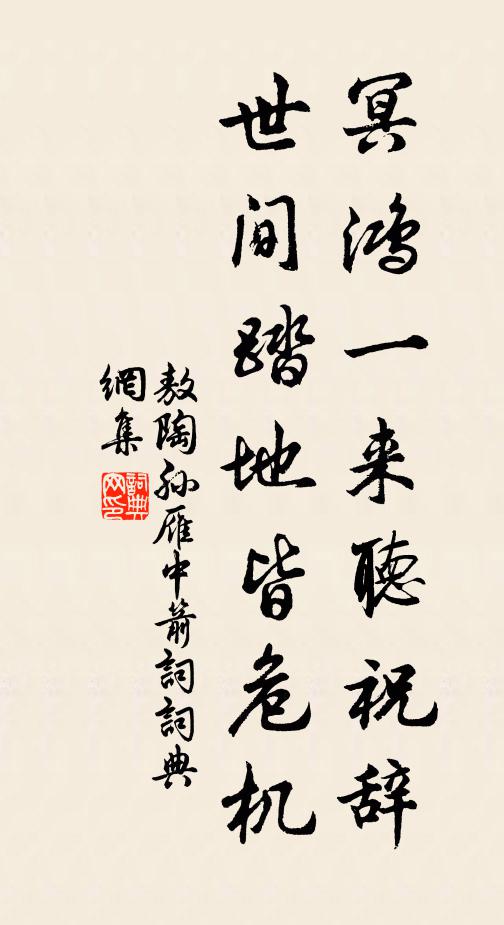 冥鸿一来聽祝辞
世间踏地皆危机
敖陶孙雁中箭詞詞典
網集
詞典网印